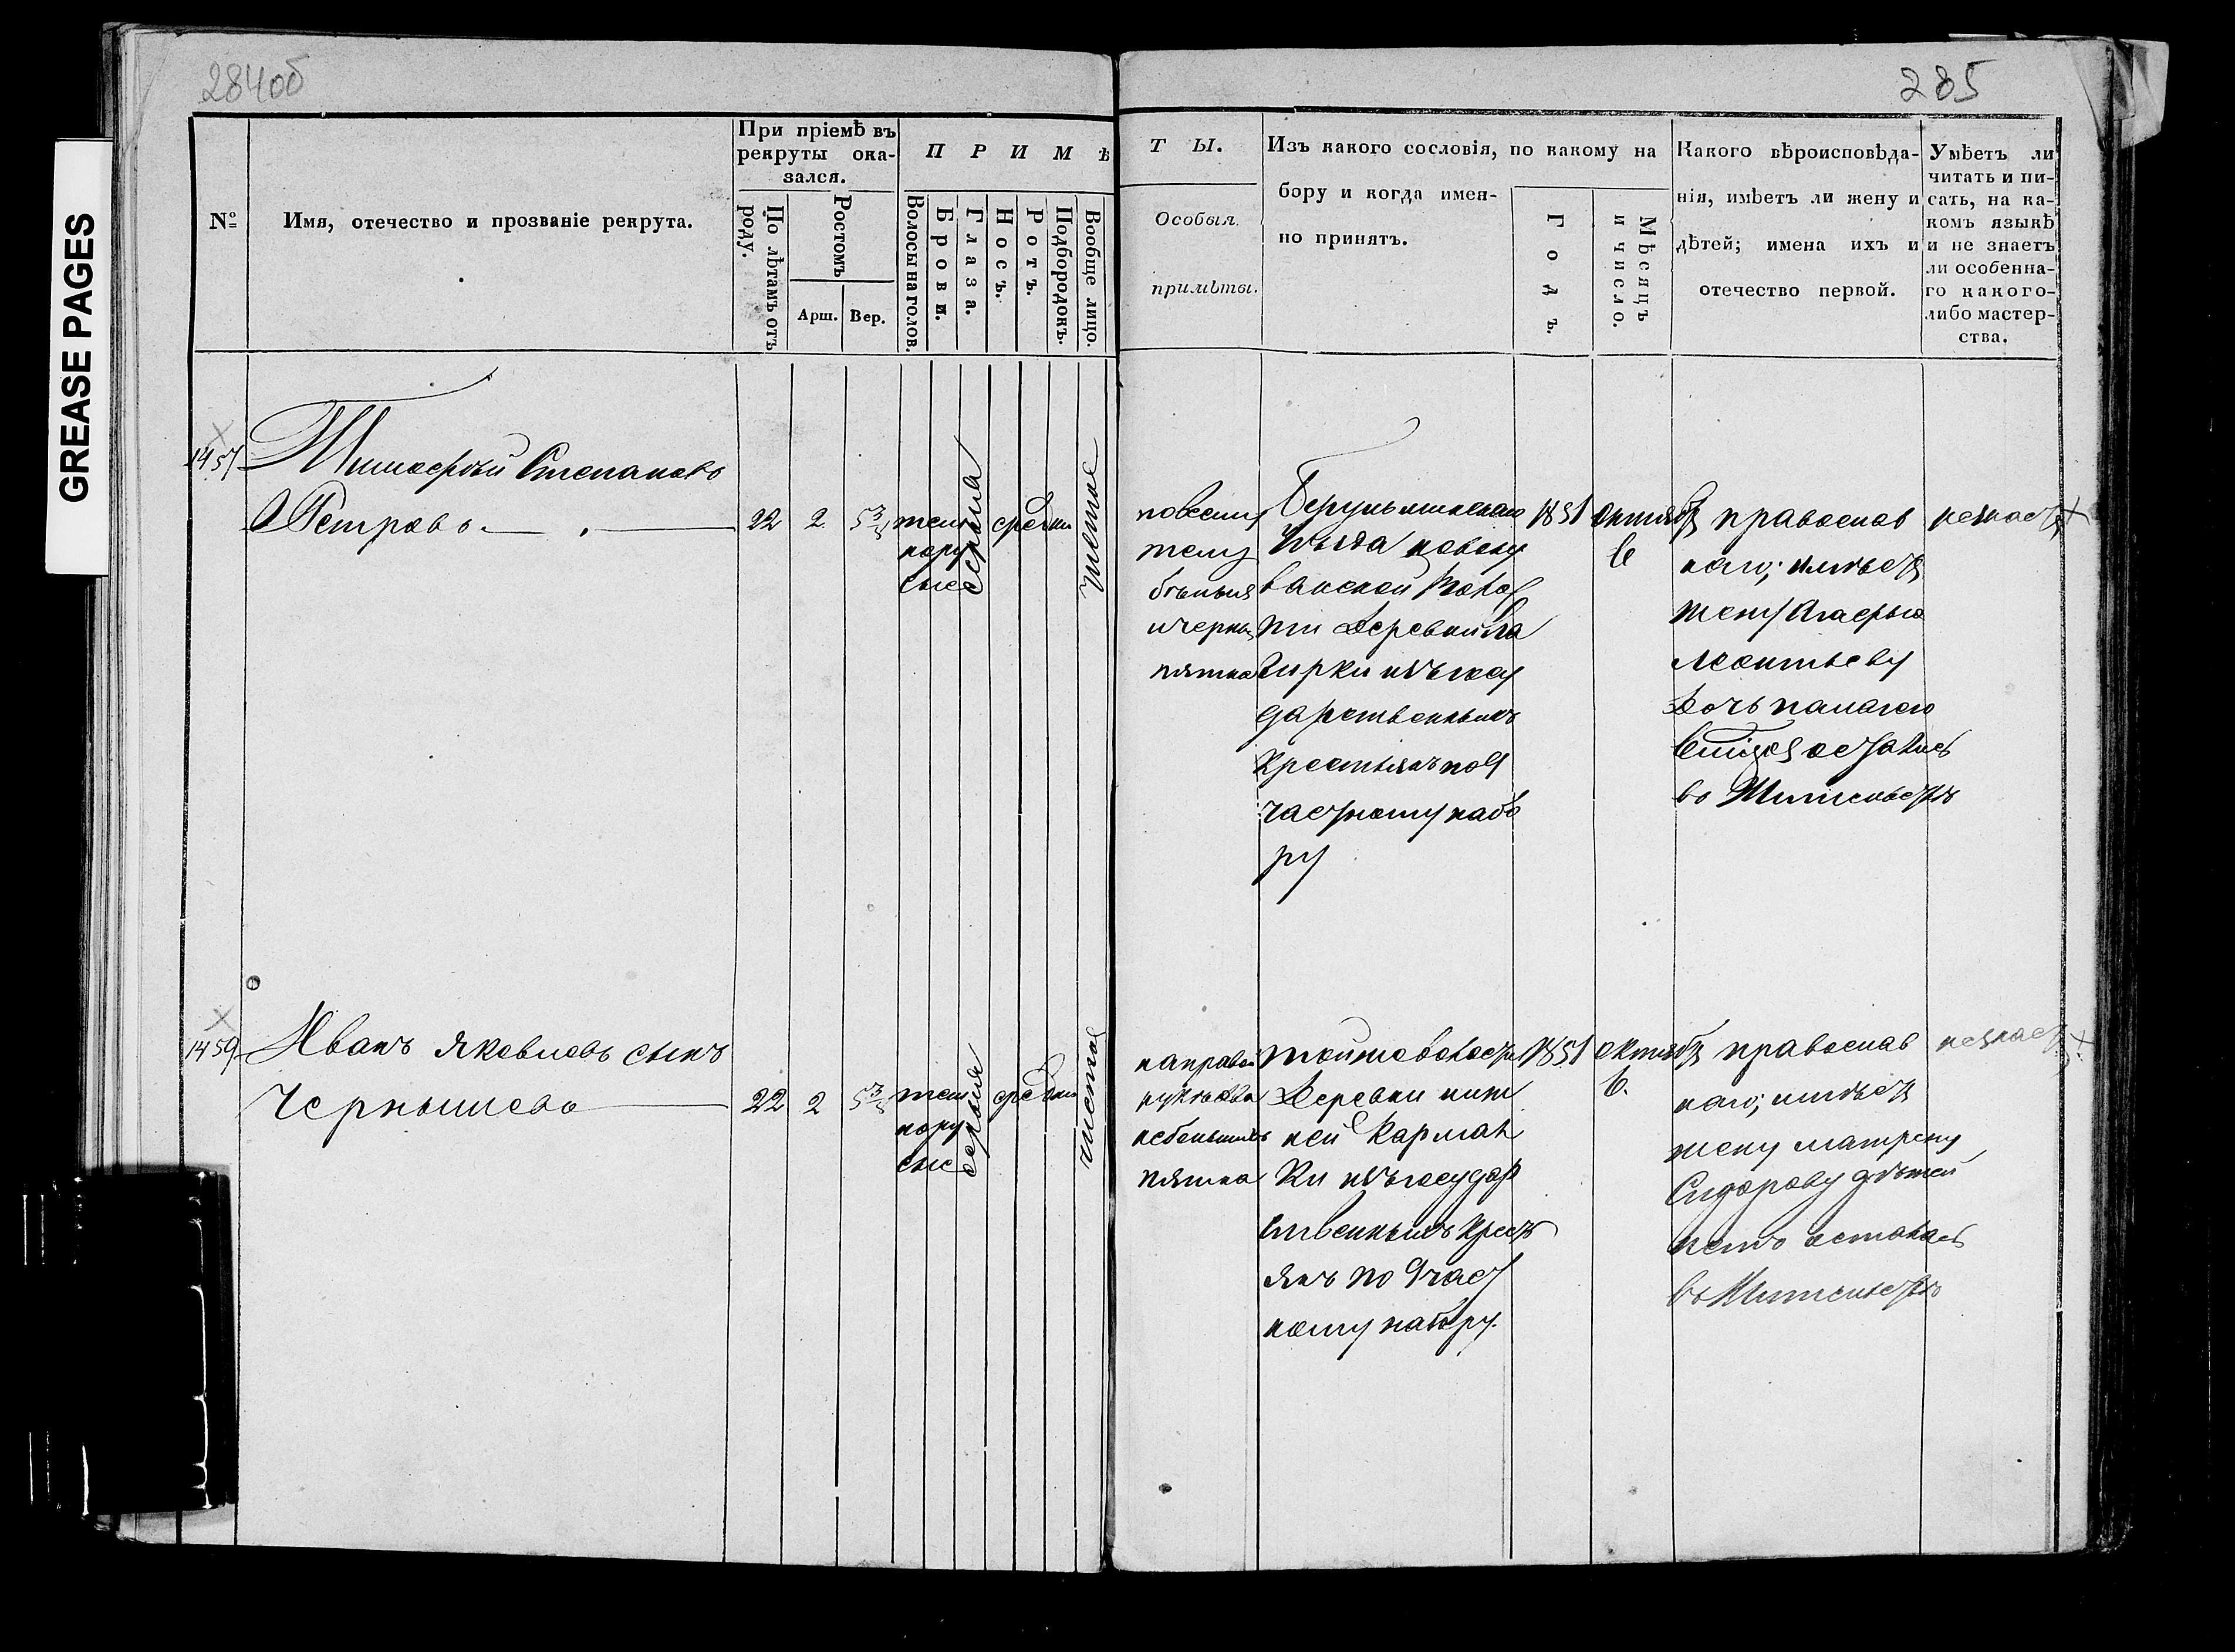 284об
285
GREASE PAGES
№
Имя, отечество и прозваніе рекрута.
При пріемѣ въ
рекруты ока-
зался.
По лѣтамъ отъ
роду.
Ростомъ
Арш.
Вер.
П Р И М Ѣ
Волосы на голов.
Брови.
Глаза.
Носъ.
Ротъ.
Подбородокъ.
Вообще лицо.
Т Ы.
Особыя
примѣты.
Изъ какого сословія, по какому на
бору и когда имен-
но принятъ.
Годъ.
Мѣсяцъ
и число.
Какого вѣроисповѣда-
нія, имѣетъ ли жену и
дѣтей; имена ихъ и
отечество первой.
Умѣетъ ли
читать и пи-
сать, на ка-
комъ языкѣ
и не знаетъ
ли особенна-
го какого-
либо мастер-
ства.
1457
Тимофѣй Степановъ
Петровъ
22
2
5 3/8
темно
русые
серыя
средни
чистое
по всему
телу
и черныя
пятна
уѣзда
волос
ти деревни
изъ госу
дарственныхъ
крестьянъ по 9
частному набо
ру
1851
октября
6
православ
наго; имѣетъ
жену Агафью
Леонтьеву
дочь
остались
въ жительствѣ
незнаетъ
1459
Иванъ Яковлевъ сынъ
Чернышевъ
22
2
5 3/8
темно
русые
серыя
средни
чистое
на правой
руке два
небольшихъ
пятна
той же волости
деревни ниж
ней Карман
ки изъ государ
ственныхъ крест
янъ по 9 част
ному набору.
1851
октября
6.
православ
наго; имѣетъ
жену Матрену
Сидорову дѣтей
нетъ осталась
въ жительствѣ
незнаетъ